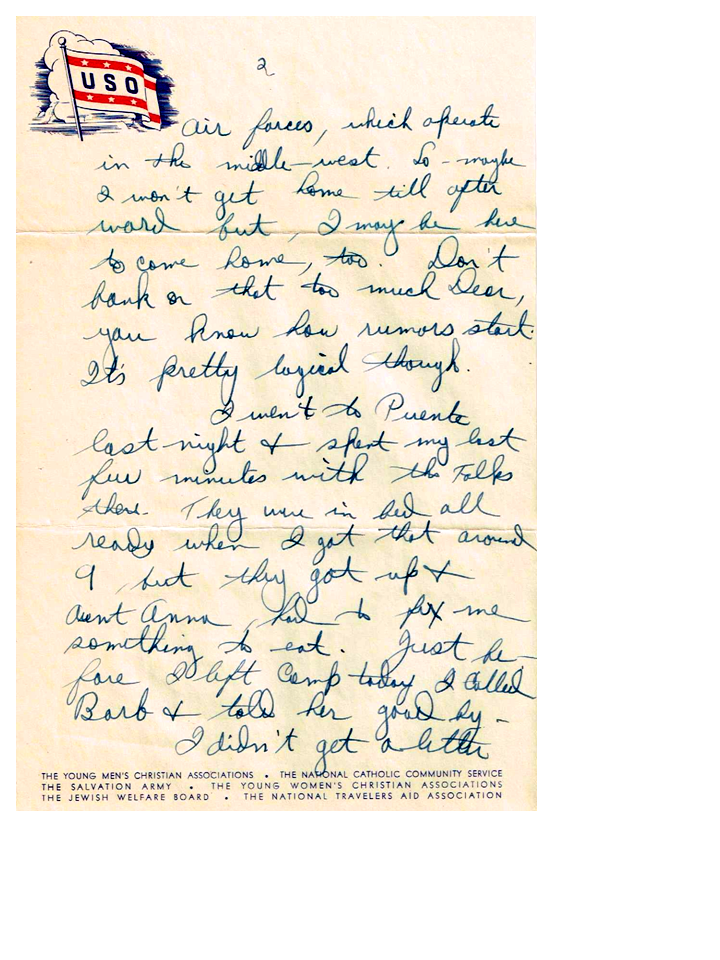 2
USO
air forces, which operate
in the middle-west. So-maybe
I won't get home till after
ward but, I may be here
to come home, too. Don't
bank on that too much Dear,
you know how rumors start.
It's pretty logical though.
I went to Puente
last night & spent my last
few minutes with the Folks
there. They were in bed all
ready when I got that around
9, but they got up &
Aunt Anna, had to fix me
something to eat. Just be-
fore I left Camp today I called
Barb & told her good by-
I didn't get a letter
THE YOUNG MEN'S CHRISTIAN ASSOCIATIONS • THE NATIONAL CATHOLIC COMMUNITY SERVICE
THE SALVATION ARMY • THE YOUNG WOMEN'S CHRISTIAN ASSOCIATIONS
THE JEWISH WELFARE BOARD • THE NATIONAL TRAVELERS AID ASSOCIATION